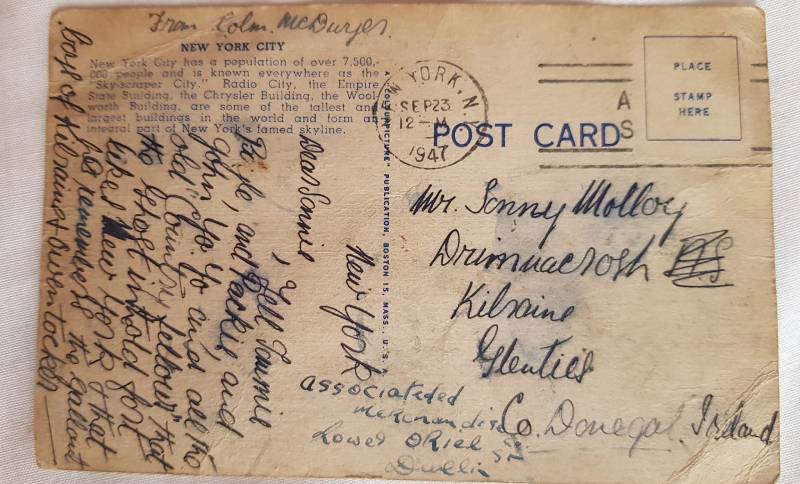 From Colm McDurger
NEW YORK CITY
New York City has a population of over 7,500,-
000 people and is known everywhere as the
"Sky-scraper City." Radio City, the Empire
State Building, the Chrysler Building, the Wool-
worth Building, are some of the tallest and
largest buildings in the world and form an
integral part of New York's famed skyline.
A "COLOURPICTURE" PUBLICATION, BOSTON 15, MASS., U.S.A.
NEW YORK, N.Y.
SEP 23
12 - M
1947
A
S
PLACE
STAMP
HERE
POST CARD
New York
Dear Sonnie
, Tell Tommie
and Packie, and
John Yo Yo and all the
old Country fellows that
the Ghost in told for
likes New York & that
he remembers the gallant
boys of Kilraine & Owentocker
Mr. Sonny Molloy
Drimnacrosh
Kilraine
Glenties
Co. Donegal, Ireland
associateded
Merchandise
Lower ORiel St
Dublin